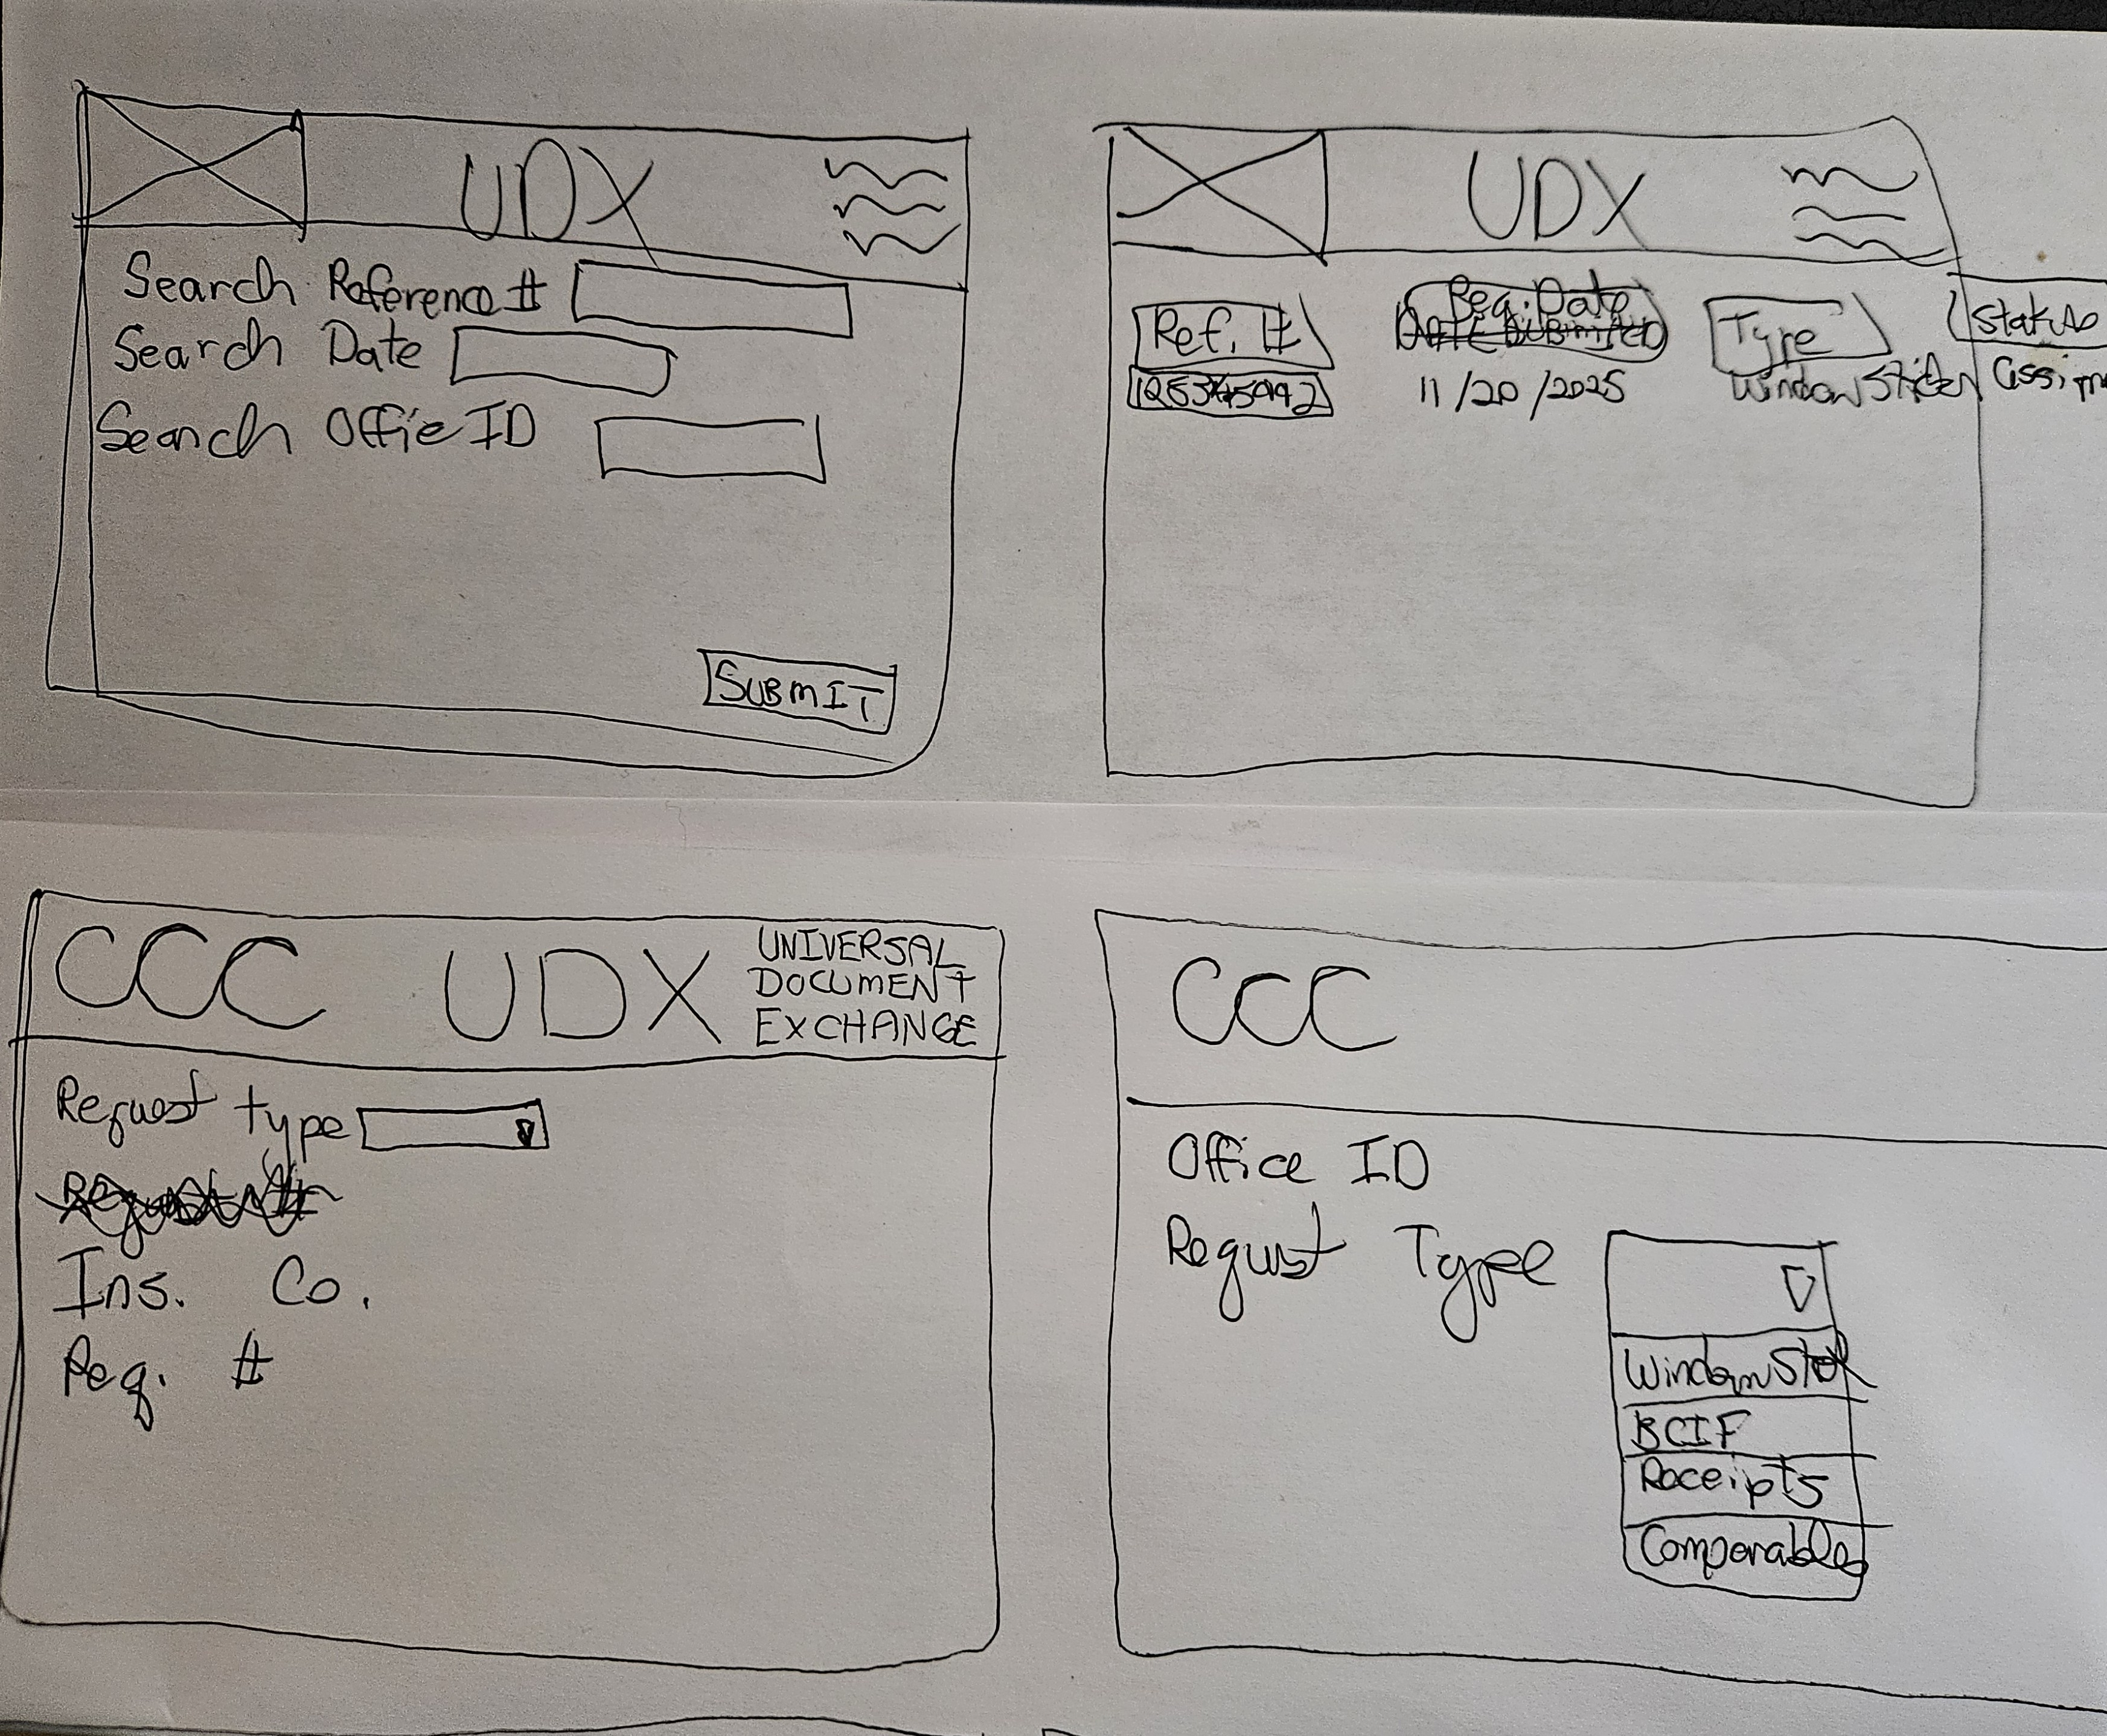 UDX
Search Reference #
Search Date
Search Offie ID
SUBMIT
UDX
Ref. # Req. Date Type Status
11/20/2025 Window Sticker
CCC UDX UNIVERSAL
DOCUMENT
EXCHANGE
Request type
Ins. Co.
Req. #
CCC
Office ID
Request Type
Window
BCIF
Receipts
Comparables